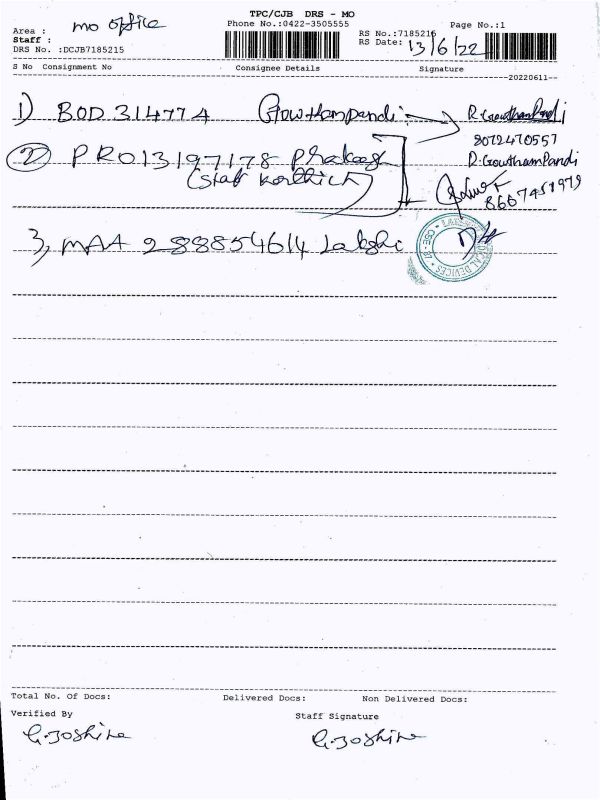 TPC/CJB DRS - MO
Area : mo office Phone No.:0422-3505555 Page No.:1
Staff : RS No.:7185216
DRS No. :DCJB7185215 RS Date: 13/6/22
S No Consignment No Consignee Details Signature
20220611
1) BOD 314774 Gowthampandi R.GowthamPandi
8072470557
2) PRO13197178 R.GowthamPandi
(Staff Karthick) 8667451979
3, MAA 288854614 Lakshi
Total No. Of Docs: Delivered Docs: Non Delivered Docs:
Verified By Staff Signature
G.Joshine G.Joshine